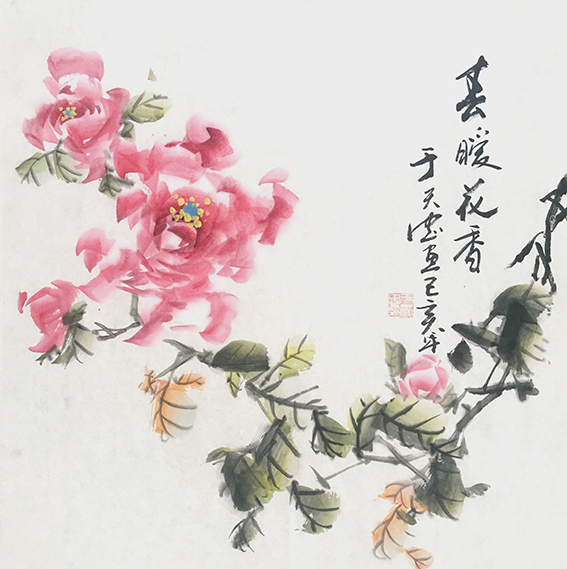 春暖花香
于天德画己亥年